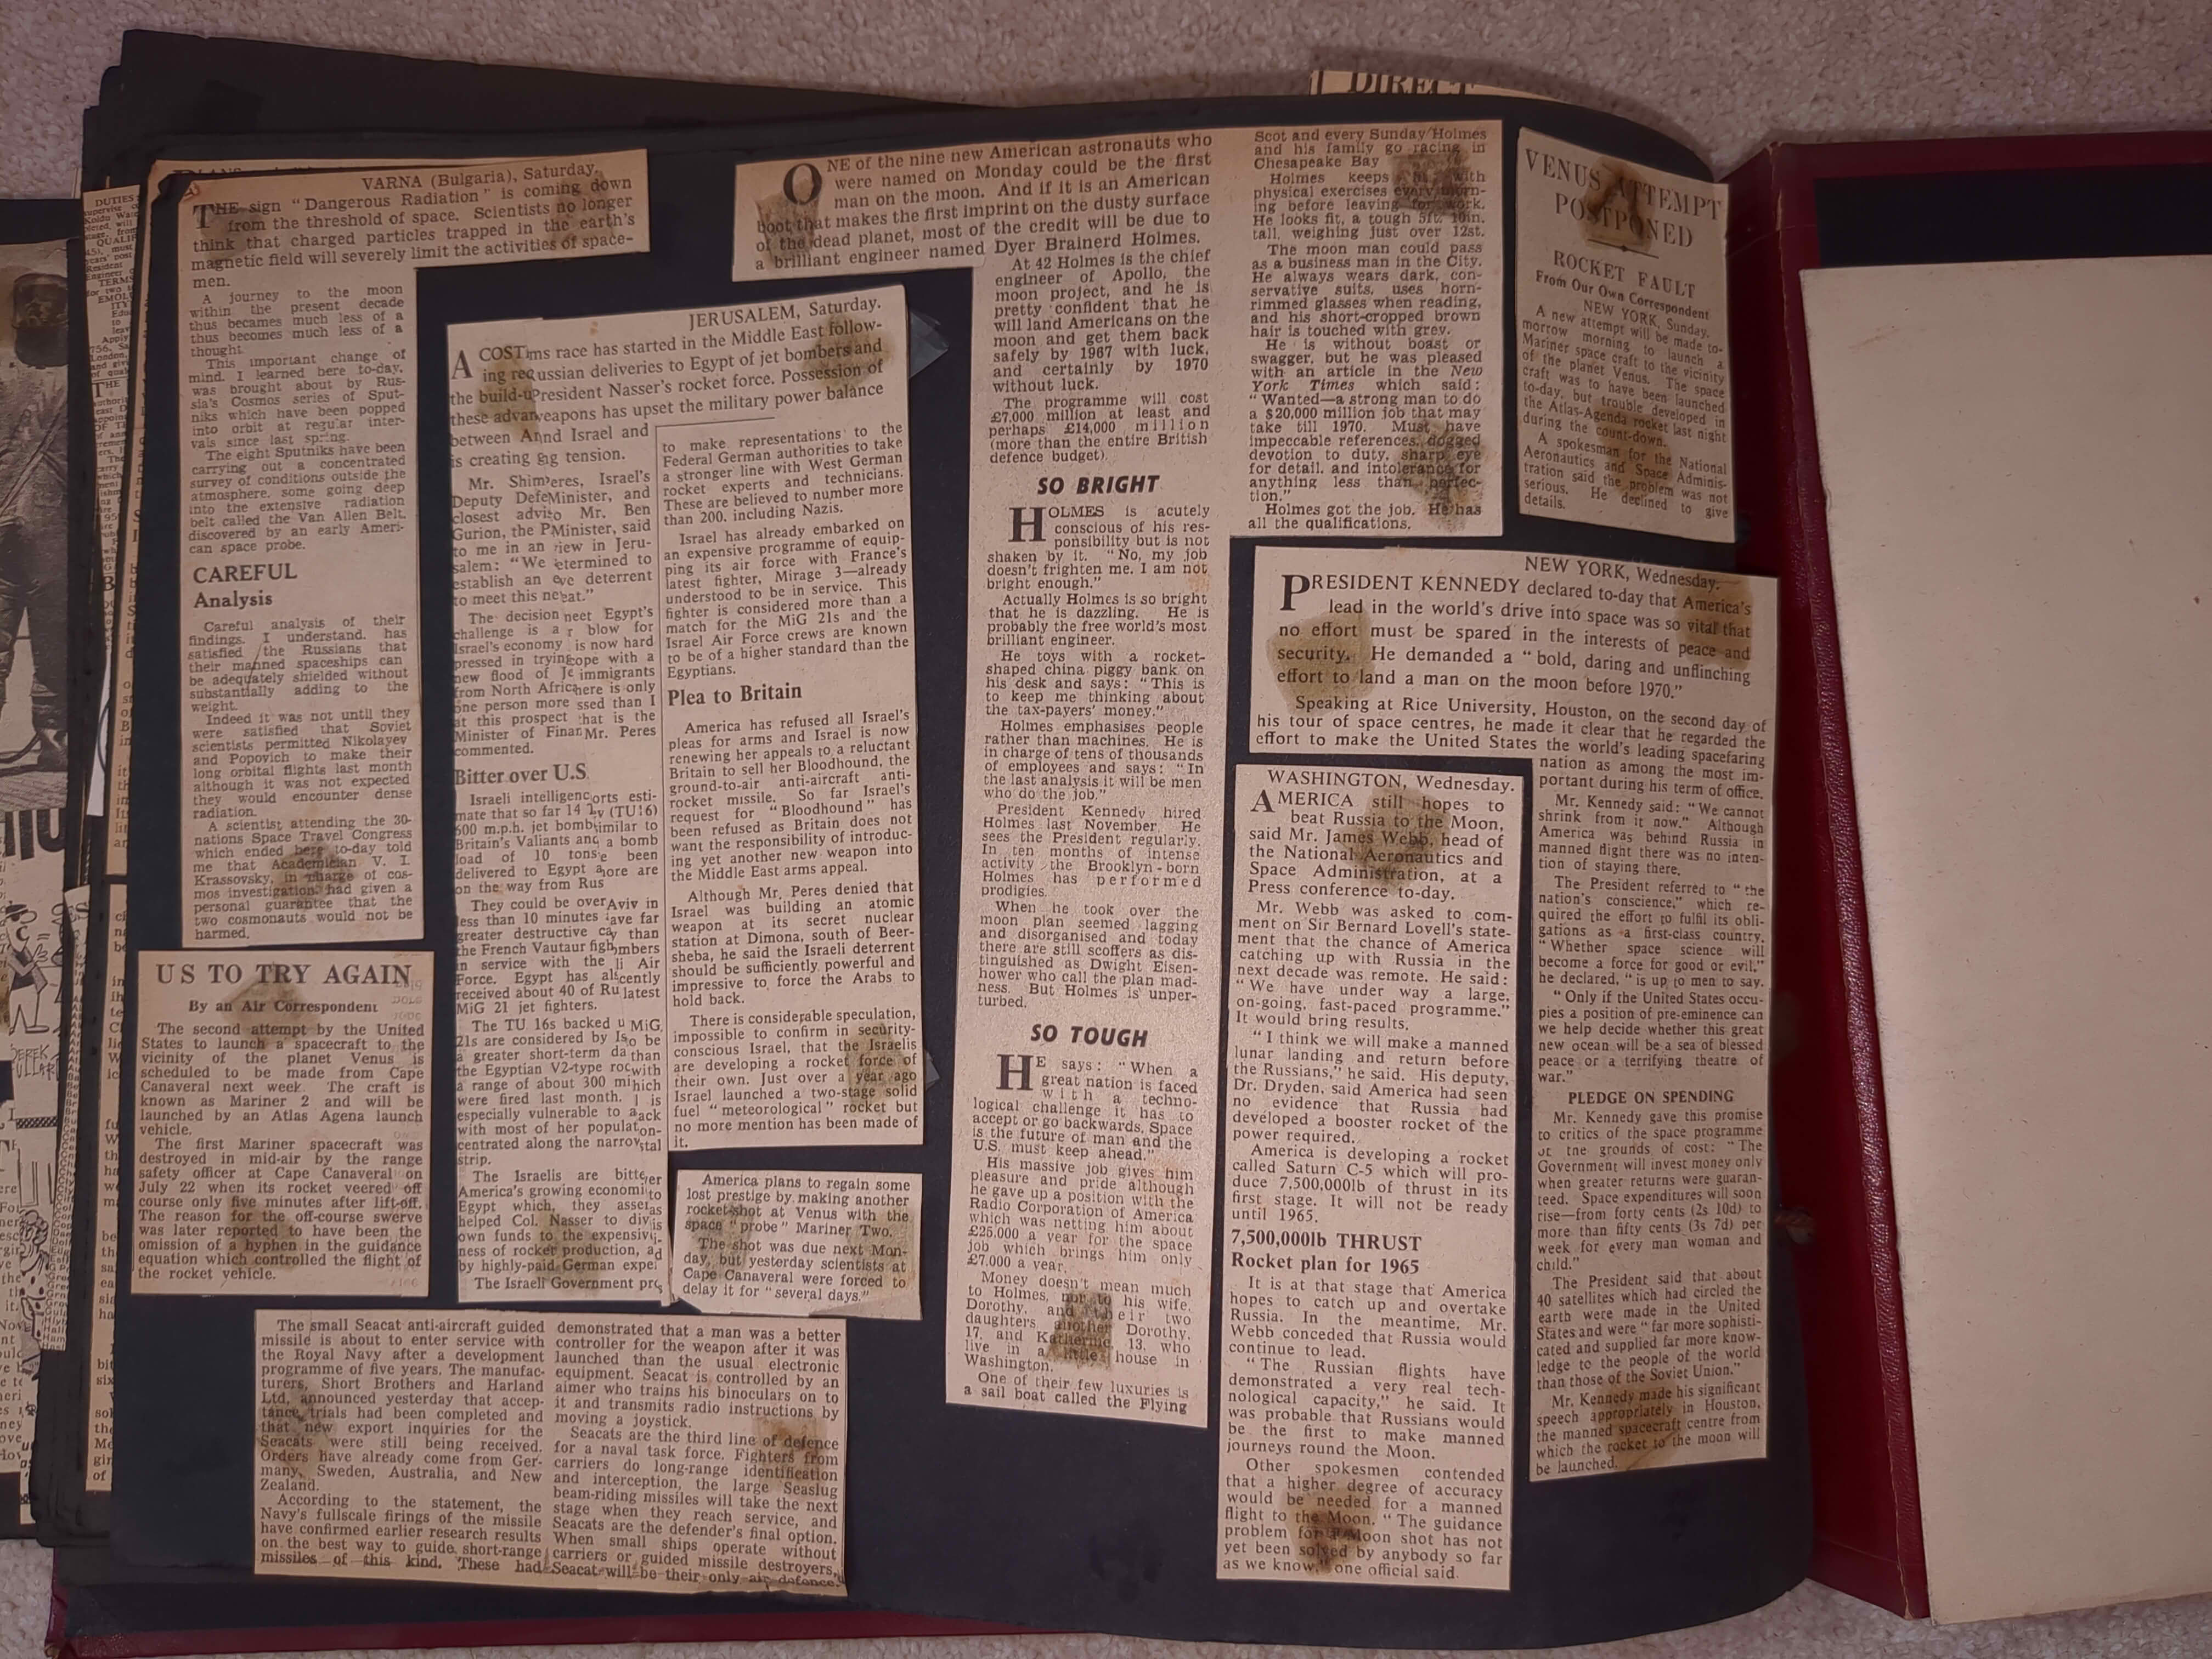 DIRECT
VARNA (Bulgaria), Saturday.
THE sign "Dangerous Radiation" is coming down
from the threshold of space. Scientists no longer
think that charged particles trapped in the earth's
magnetic field will severely limit the activities of space-
men.
A journey to the moon
within the present decade
thus becames much less of a
thus becomes much less of a
thought.
This important change of
mind, I learned here to-day,
was brought about by Rus-
sia's Cosmos series of Sput-
niks which have been popped
into orbit at regular inter-
vals since last spring.
The eight Sputniks have been
carrying out a concentrated
survey of conditions outside the
atmosphere, some going deep
into the extensive radiation
belt called the Van Allen Belt,
discovered by an early Ameri-
can space probe.
CAREFUL
Analysis
Careful analysis of their
findings, I understand, has
satisfied the Russians that
their manned spaceships can
be adequately shielded without
substantially adding to the
weight.
Indeed it was not until they
were satisfied that Soviet
scientists permitted Nikolayev
and Popovich to make their
long orbital flights last month
although it was not expected
they would encounter dense
radiation.
A scientist attending the 30-
nations Space Travel Congress
which ended here to-day told
me that Academician V. I.
Krassovsky, in charge of cos-
mos investigation, had given a
personal guarantee that the
two cosmonauts would not be
harmed.
US TO TRY AGAIN
By an Air Correspondent
The second attempt by the United
States to launch a spacecraft to the
vicinity of the planet Venus is
scheduled to be made from Cape
Canaveral next week. The craft is
known as Mariner 2 and will be
launched by an Atlas Agena launch
vehicle.
The first Mariner spacecraft was
destroyed in mid-air by the range
safety officer at Cape Canaveral on
July 22 when its rocket veered off
course only five minutes after lift-off.
The reason for the off-course swerve
was later reported to have been the
omission of a hyphen in the guidance
equation which controlled the flight of
the rocket vehicle.
JERUSALEM, Saturday.
A COST ms race has started in the Middle East follow-
ing rec ussian deliveries to Egypt of jet bombers and
the build-u President Nasser's rocket force. Possession of
these advan weapons has upset the military power balance
between A nd Israel and
is creating g tension.
Mr. Shim eres, Israel's
Deputy Defe Minister, and
closest advi to Mr. Ben
Gurion, the P Minister, said
to me in an view in Jeru-
salem: "We etermined to
establish an e ve deterrent
to meet this ne eat."
The decision neet Egypt's
challenge is a r blow for
Israel's economy is now hard
pressed in trying ope with a
new flood of Je immigrants
from North Afric here is only
one person more ssed than I
at this prospect hat is the
Minister of Finan Mr. Peres
commented.
Bitter over U.S
Israeli intelligenc orts esti-
mate that so far 14 (TU16)
600 m.p.h. jet bomb similar to
Britain's Valiants and a bomb
load of 10 tons e been
delivered to Egypt ore are
on the way from Rus
They could be over Aviv in
less than 10 minutes ave far
greater destructive ca y than
the French Vautour figh mbers
in service with the li Air
Force. Egypt has al cently
received about 40 of Ru latest
MiG 21 jet fighters.
The TU 16s backed u MiG
21s are considered by Is o be
a greater short-term da than
the Egyptian V2-type roc with
a range of about 300 mi hich
were fired last month. I is
especially vulnerable to a ack
with most of her populat on-
centrated along the narrow stal
strip.
The Israelis are bitter
America's growing economi to
Egypt which, they assert as
helped Col. Nasser to div is
own funds to the expensiv i-
ness of rocket production, a d
by highly-paid German exper
The Israeli Government pro
to make representations to the
Federal German authorities to take
a stronger line with West German
rocket experts and technicians.
These are believed to number more
than 200, including Nazis.
Israel has already embarked on
an expensive programme of equip-
ping its air force with France's
latest fighter, Mirage 3—already
understood to be in service. This
fighter is considered more than a
match for the MiG 21s and the
Israel Air Force crews are known
to be of a higher standard than the
Egyptians.
Plea to Britain
America has refused all Israel's
pleas for arms and Israel is now
renewing her appeals to a reluctant
Britain to sell her Bloodhound, the
ground-to-air anti-aircraft anti-
rocket missile. So far Israel's
request for "Bloodhound" has
been refused as Britain does not
want the responsibility of introduc-
ing yet another new weapon into
the Middle East arms appeal.
Although Mr. Peres denied that
Israel was building an atomic
weapon at its secret nuclear
station at Dimona, south of Beer-
sheba, he said the Israeli deterrent
should be sufficiently powerful and
impressive to force the Arabs to
hold back.
There is considerable speculation,
impossible to confirm in security-
conscious Israel, that the Israelis
are developing a rocket force of
their own. Just over a year ago
Israel launched a two-stage solid
fuel "meteorological" rocket but
no more mention has been made of
it.
America plans to regain some
lost prestige by making another
rocket-shot at Venus with the
space "probe" Mariner Two.
The shot was due next Mon-
day, but yesterday scientists at
Cape Canaveral were forced to
delay it for "several days."
The small Seacat anti-aircraft guided
missile is about to enter service with
the Royal Navy after a development
programme of five years. The manufac-
turers, Short Brothers and Harland
Ltd, announced yesterday that accep-
tance trials had been completed and
that new export inquiries for the
Seacats were still being received.
Orders have already come from Ger-
many, Sweden, Australia, and New
Zealand.
According to the statement, the
Navy's fullscale firings of the missile
have confirmed earlier research results
on the best way to guide short-range
missiles of this kind. These had
demonstrated that a man was a better
controller for the weapon after it was
launched than the usual electronic
equipment. Seacat is controlled by an
aimer who trains his binoculars on to
it and transmits radio instructions by
moving a joystick.
Seacats are the third line of defence
for a naval task force. Fighters from
carriers do long-range identification
and interception, the large Seaslug
beam-riding missiles will take the next
stage when they reach service, and
Seacats are the defender's final option.
When small ships operate without
carriers or guided missile destroyers,
Seacat will be their only air defence.
ONE of the nine new American astronauts who
were named on Monday could be the first
man on the moon. And if it is an American
boot that makes the first imprint on the dusty surface
of the dead planet, most of the credit will be due to
a brilliant engineer named Dyer Brainerd Holmes.
At 42 Holmes is the chief
engineer of Apollo, the
moon project, and he is
pretty confident that he
will land Americans on the
moon and get them back
safely by 1967 with luck,
and certainly by 1970
without luck.
The programme will cost
£7,000 million at least and
perhaps £14,000 million
(more than the entire British
defence budget).
SO BRIGHT
HOLMES is acutely
conscious of his res-
ponsibility but is not
shaken by it. "No, my job
doesn't frighten me. I am not
bright enough."
Actually Holmes is so bright
that he is dazzling. He is
probably the free world's most
brilliant engineer.
He toys with a rocket-
shaped china piggy bank on
his desk and says: "This is
to keep me thinking about
the tax-payers' money."
Holmes emphasises people
rather than machines. He is
in charge of tens of thousands
of employees and says: "In
the last analysis it will be men
who do the job."
President Kennedy hired
Holmes last November. He
sees the President regularly.
In ten months of intense
activity the Brooklyn-born
Holmes has performed
prodigies.
When he took over the
moon plan seemed lagging
and disorganised and today
there are still scoffers as dis-
tinguished as Dwight Eisen-
hower who call the plan mad-
ness. But Holmes is unper-
turbed.
SO TOUGH
HE says: "When a
great nation is faced
with a techno-
logical challenge it has to
accept or go backwards. Space
is the future of man and the
U.S. must keep ahead."
His massive job gives him
pleasure and pride although
he gave up a position with the
Radio Corporation of America
which was netting him about
£25,000 a year for the space
job which brings him only
£7,000 a year.
Money doesn't mean much
to Holmes, nor to his wife,
Dorothy, and their two
daughters another Dorothy,
17, and Katherine, 13, who
live in a little house in
Washington.
One of their few luxuries is
a sail boat called the Flying
Scot and every Sunday Holmes
and his family go racing in
Chesapeake Bay
Holmes keeps fit with
physical exercises every morn-
ing before leaving for work.
He looks fit, a tough 5ft. 10in.
tall, weighing just over 12st.
The moon man could pass
as a business man in the City.
He always wears dark, con-
servative suits, uses horn-
rimmed glasses when reading,
and his short-cropped brown
hair is touched with grey.
He is without boast or
swagger, but he was pleased
with an article in the New
York Times which said:
"Wanted—a strong man to do
a $20,000 million job that may
take till 1970. Must have
impeccable references, dogged
devotion to duty, sharp eye
for detail, and intolerance for
anything less than perfec-
tion."
Holmes got the job. He has
all the qualifications.
VENUS ATTEMPT
POSTPONED
ROCKET FAULT
From Our Own Correspondent
NEW YORK, Sunday.
A new attempt will be made to-
morrow morning to launch a
Mariner space craft to the vicinity
of the planet Venus. The space
craft was to have been launched
to-day, but trouble developed in
the Atlas-Agenda rocket last night
during the count-down.
A spokesman for the National
Aeronautics and Space Adminis-
tration said the problem was not
serious. He declined to give
details.
NEW YORK, Wednesday.
PRESIDENT KENNEDY declared to-day that America's
lead in the world's drive into space was so vital that
no effort must be spared in the interests of peace and
security. He demanded a "bold, daring and unflinching
effort to land a man on the moon before 1970."
Speaking at Rice University, Houston, on the second day of
his tour of space centres, he made it clear that he regarded the
effort to make the United States the world's leading spacefaring
nation as among the most im-
portant during his term of office.
Mr. Kennedy said: "We cannot
shrink from it now." Although
America was behind Russia in
manned flight there was no inten-
tion of staying there.
The President referred to "the
nation's conscience," which re-
quired the effort to fulfil its obli-
gations as a first-class country.
"Whether space science will
become a force for good or evil,"
he declared, "is up to men to say.
"Only if the United States occu-
pies a position of pre-eminence can
we help decide whether this great
new ocean will be a sea of blessed
peace or a terrifying theatre of
war."
PLEDGE ON SPENDING
Mr. Kennedy gave this promise
to critics of the space programme
on the grounds of cost: "The
Government will invest money only
when greater returns were guaran-
teed. Space expenditures will soon
rise—from forty cents (2s 10d) to
more than fifty cents (3s 7d) per
week for every man woman and
child."
The President said that about
40 satellites which had circled the
earth were made in the United
States and were "far more sophisti-
cated and supplied far more know-
ledge to the people of the world
than those of the Soviet Union."
Mr. Kennedy made his significant
speech appropriately in Houston,
the manned spacecraft centre from
which the rocket to the moon will
be launched.
WASHINGTON, Wednesday.
AMERICA still hopes to
beat Russia to the Moon,
said Mr. James Webb, head of
the National Aeronautics and
Space Administration, at a
Press conference to-day.
Mr. Webb was asked to com-
ment on Sir Bernard Lovell's state-
ment that the chance of America
catching up with Russia in the
next decade was remote. He said:
"We have under way a large,
on-going, fast-paced programme."
It would bring results.
"I think we will make a manned
lunar landing and return before
the Russians," he said. His deputy,
Dr. Dryden, said America had seen
no evidence that Russia had
developed a booster rocket of the
power required.
America is developing a rocket
called Saturn C-5 which will pro-
duce 7,500,000lb of thrust in its
first stage. It will not be ready
until 1965.
7,500,000lb THRUST
Rocket plan for 1965
It is at that stage that America
hopes to catch up and overtake
Russia. In the meantime, Mr.
Webb conceded that Russia would
continue to lead.
"The Russian flights have
demonstrated a very real tech-
nological capacity," he said. It
was probable that Russians would
be the first to make manned
journeys round the Moon.
Other spokesmen contended
that a higher degree of accuracy
would be needed for a manned
flight to the Moon. "The guidance
problem for a Moon shot has not
yet been solved by anybody so far
as we know," one official said.